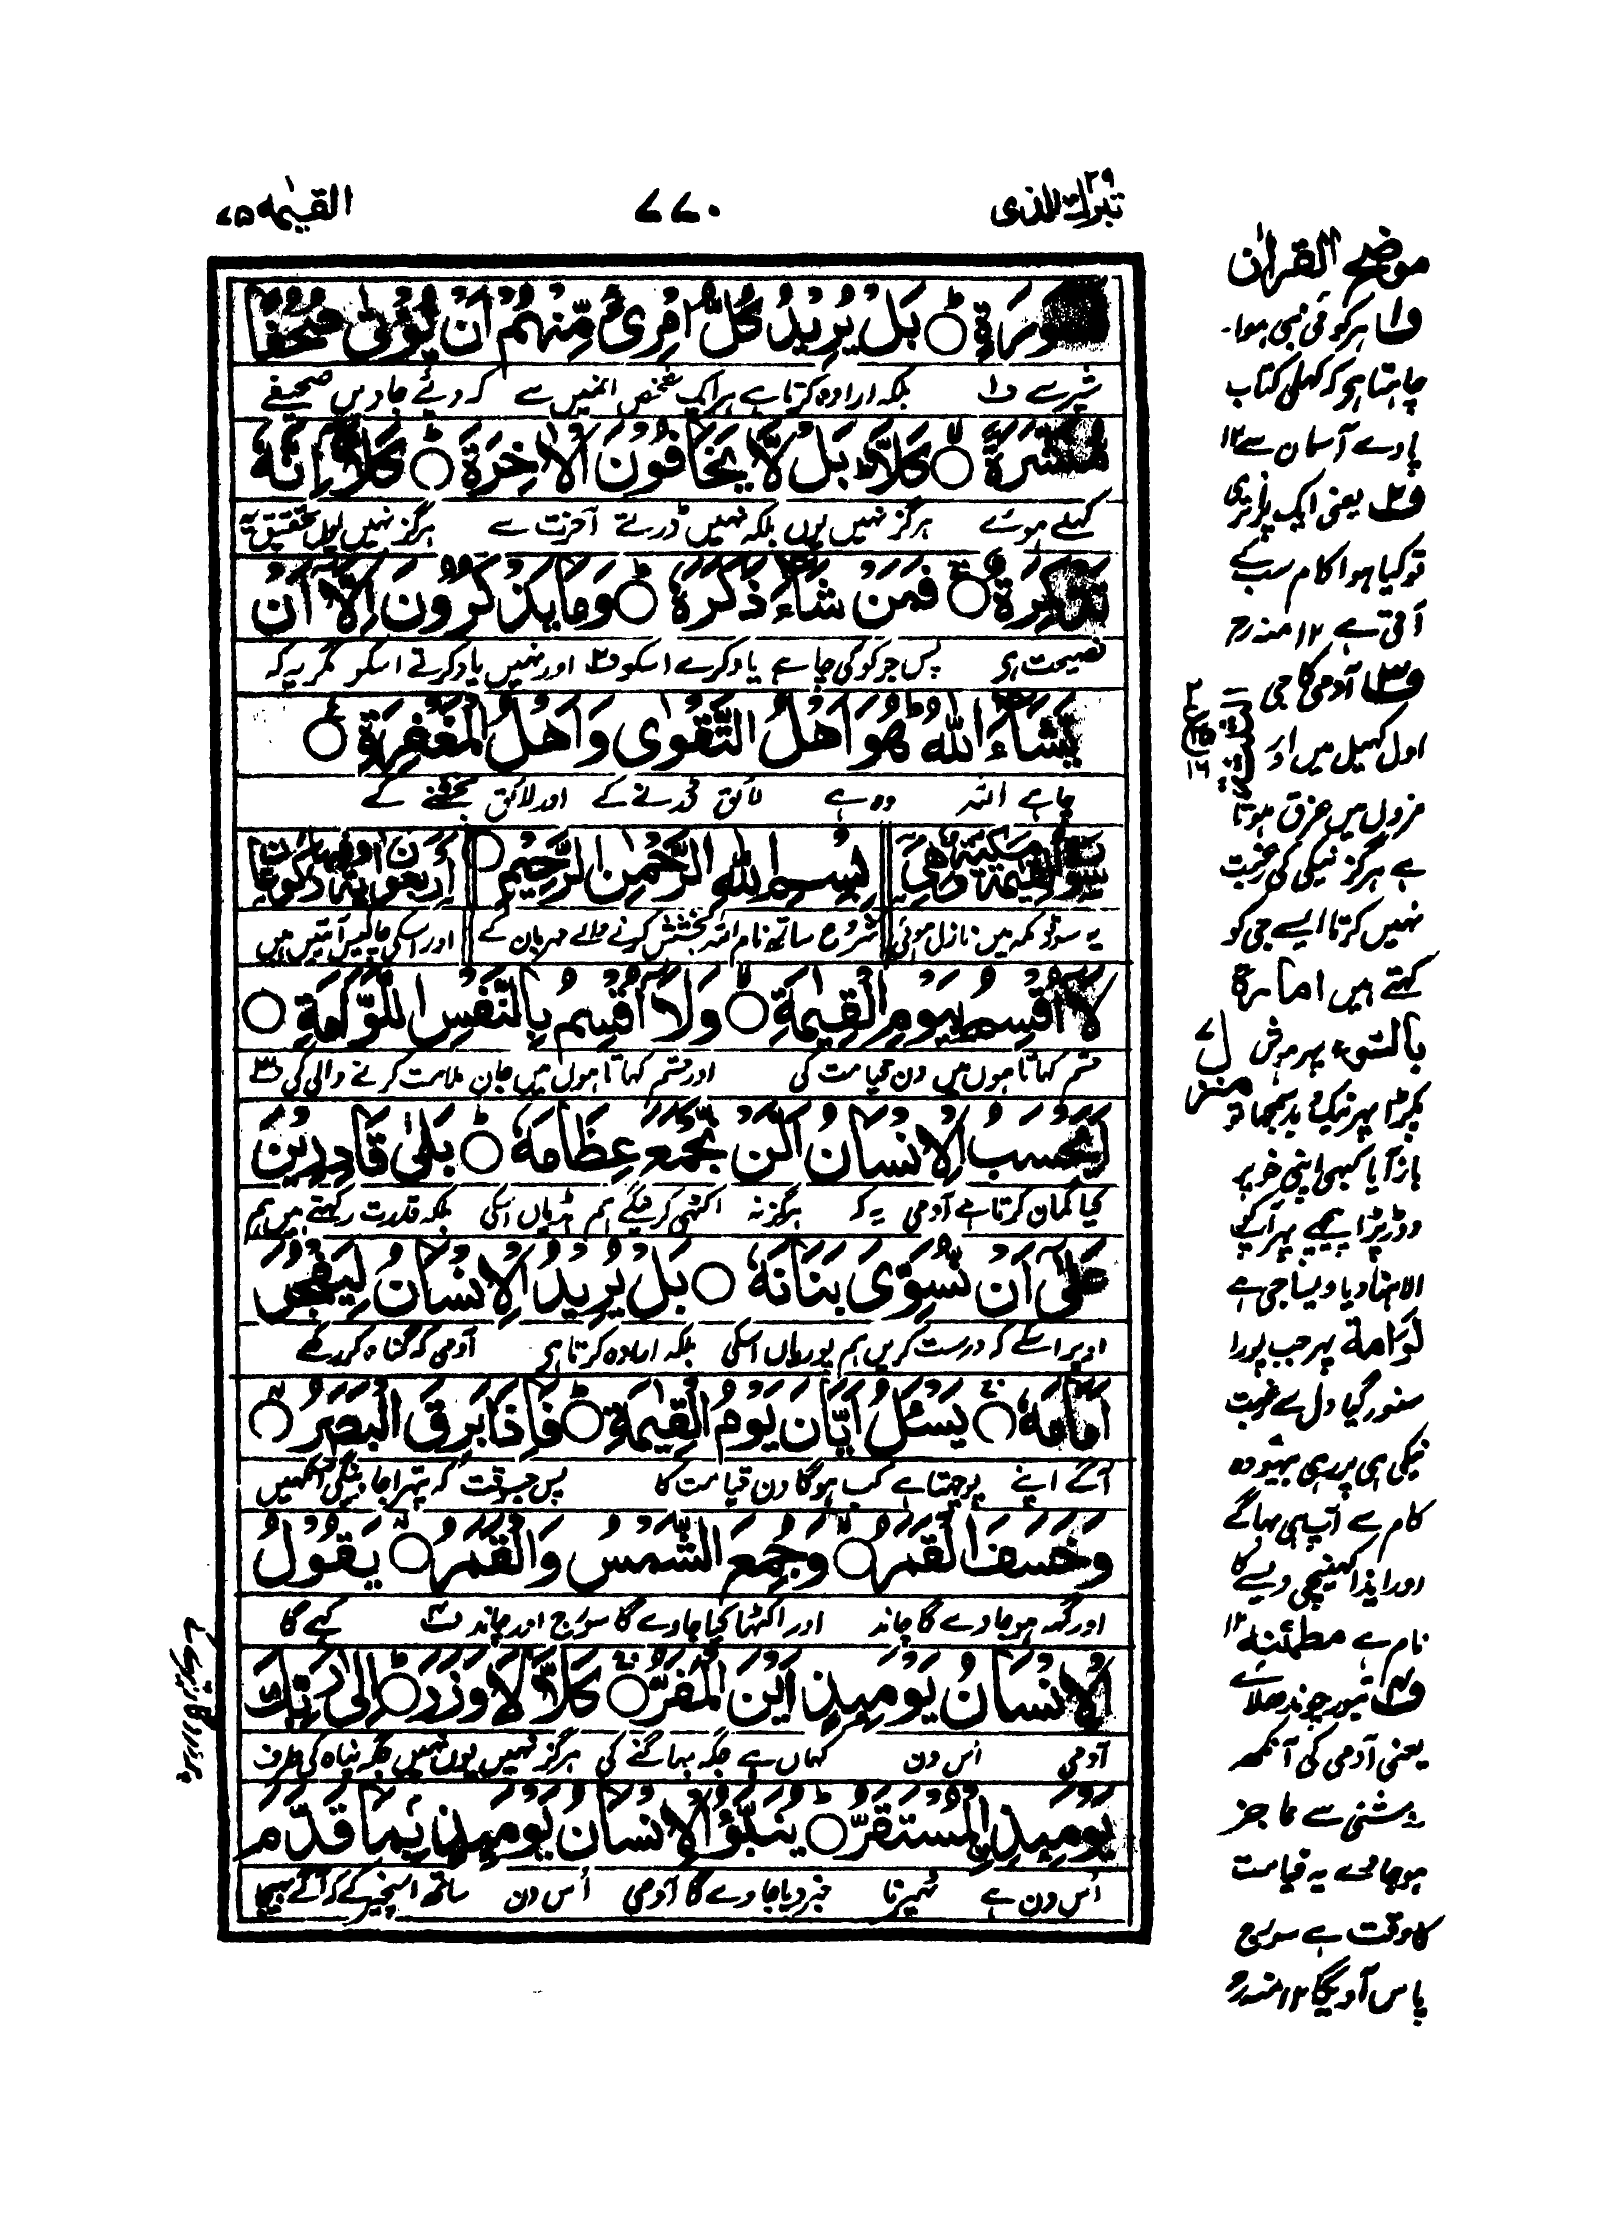 تبٰرک الذی ۲۹
۷۷۰
القیٰمه ۷۵
قَسْوَرَةٍ ۞ بَلْ يُرِيْدُ كُلُّ امْرِئٍ مِّنْهُمْ اَنْ يُّؤْتٰى صُحُفًا
شیر سے ف۱ بلکہ ارادہ کرتا ہے ہر ایک شخص انمیں سے کہ دئے جاویں صحیفے
مُّنَشَّرَةً ۞ كَلَّا بَلْ لَّا يَخَافُوْنَ الْاٰخِرَةَ ۞ كَلَّا اِنَّهٗ
کھلے ہوئے ہرگز نہیں یوں بلکہ نہیں ڈرتے آخرت سے ہرگز نہیں یوں تحقیق یہ
تَذْكِرَةٌ ۞ فَمَنْ شَآءَ ذَكَرَهٗ ۞ وَمَا يَذْكُرُوْنَ اِلَّآ اَنْ
نصیحت ہی پس جو کوئی چاہے یاد کرے اسکو ف۲ اور نہیں یاد کرتے اسکو مگر یہ کہ
يَّشَآءَ اللّٰهُ هُوَ اَهْلُ التَّقْوٰى وَاَهْلُ الْمَغْفِرَةِ ۞
چاہے اللہ وہ ہے لائق ڈرنے کے اور لائق بخشنے کے
سورة القیٰمة مکیة وهی
بِسْمِ اللّٰهِ الرَّحْمٰنِ الرَّحِيْمِ
اربعون اٰیة
یہ سورة مکہ میں نازل ہوئی
شروع ساتھ نام اللہ بخشش کرنے والے مہربان کے
اور اسکی چالیس آیتیں ہیں
لَآ اُقْسِمُ بِيَوْمِ الْقِيٰمَةِ ۞ وَلَآ اُقْسِمُ بِالنَّفْسِ اللَّوَّامَةِ ۞
قسم کھاتا ہوں میں دن قیامت کی اور قسم کھاتا ہوں میں جان ملامت کرنے والی کی ف۳
اَيَحْسَبُ الْاِنْسَانُ اَلَّنْ نَّجْمَعَ عِظَامَهٗ ۞ بَلٰى قَادِرِيْنَ
کیا گمان کرتا ہے آدمی یہ کہ ہرگز نہ اکٹھی کرینگے ہم ہڈیاں اسکی بلکہ قدرت رکھتے ہیں ہم
عَلٰٓى اَنْ نُّسَوِّىَ بَنَانَهٗ ۞ بَلْ يُرِيْدُ الْاِنْسَانُ لِيَفْجُرَ
اوپر اسکے کہ درست کریں ہم پوریاں اسکی بلکہ ارادہ کرتا ہی آدمی کہ گناہ کرے
اَمَامَهٗ ۞ يَسْئَلُ اَيَّانَ يَوْمُ الْقِيٰمَةِ ۞ فَاِذَا بَرِقَ الْبَصَرُ ۞
آگے اپنے پوچھتا ہے کب ہوگا دن قیامت کا پس جسوقت کہ پتھرا جاینگی آنکھیں
وَخَسَفَ الْقَمَرُ ۞ وَجُمِعَ الشَّمْسُ وَالْقَمَرُ ۞ يَقُوْلُ
اور گہہ ہو جاوے گا چاند اور اکٹھا کیا جاوے گا سورج اور چاند ف۴ کہے گا
الْاِنْسَانُ يَوْمَئِذٍ اَيْنَ الْمَفَرُّ ۞ كَلَّا لَا وَزَرَ ۞ اِلٰى رَبِّكَ
آدمی اس دن کہاں ہے جگہ بھاگنے کی ہرگز نہیں یوں نہیں جگہ پناہ کی طرف
يَوْمَئِذِ ۨالْمُسْتَقَرُّ ۞ يُنَبَّؤُا الْاِنْسَانُ يَوْمَئِذٍۢ بِمَا قَدَّمَ
اس دن ہے ٹھیرنا خبر دیا جاوے گا آدمی اس دن ساتھ اسچیز کے کہ آگے بھیجا
موضح القراٰن
ف۱ ہر کوئی نبی ہوا۔
چاہتا ہی کہ کھلی کتاب
پاوے آسمان سے ۱۲
ف۲ یعنی ایک پر اتری
تو کیا ہوا کام سب کے
آتی ہے ۱۲ منہ رح
ف۳ آدمی کا جی
اول کھیل میں اور
مزوں میں غرق ہوتا
ہے ہرگز نیکی کی رغبت
نہیں کرتا ایسے جی کو
کہتے ہیں امارة
بالسوء پھر ہوش
پکڑا پھر نیک و بد سمجھا تو
باز آیا کبھی اپنی خو پر
دوڑ پڑا پیچھے پھر آپکو
الاہنا دیا ویسا جی ہے
لوّامة پھر جب پورا
سنور گیا دل سے رغبت
نیکی ہی پر رہی بیہودہ
کام سے آپ ہی بھاگے
اور ایذا کھینچی ویسے کا
نام ہے مطمئنة ۱۲
یعنی آدمی کی آنکھ
روشنی سے عاجز
ہو جائے یہ قیامت
کا وقت ہے سورج
پاس آویگا ۱۲ منہ رح
ع ۲
۱۶
منزل